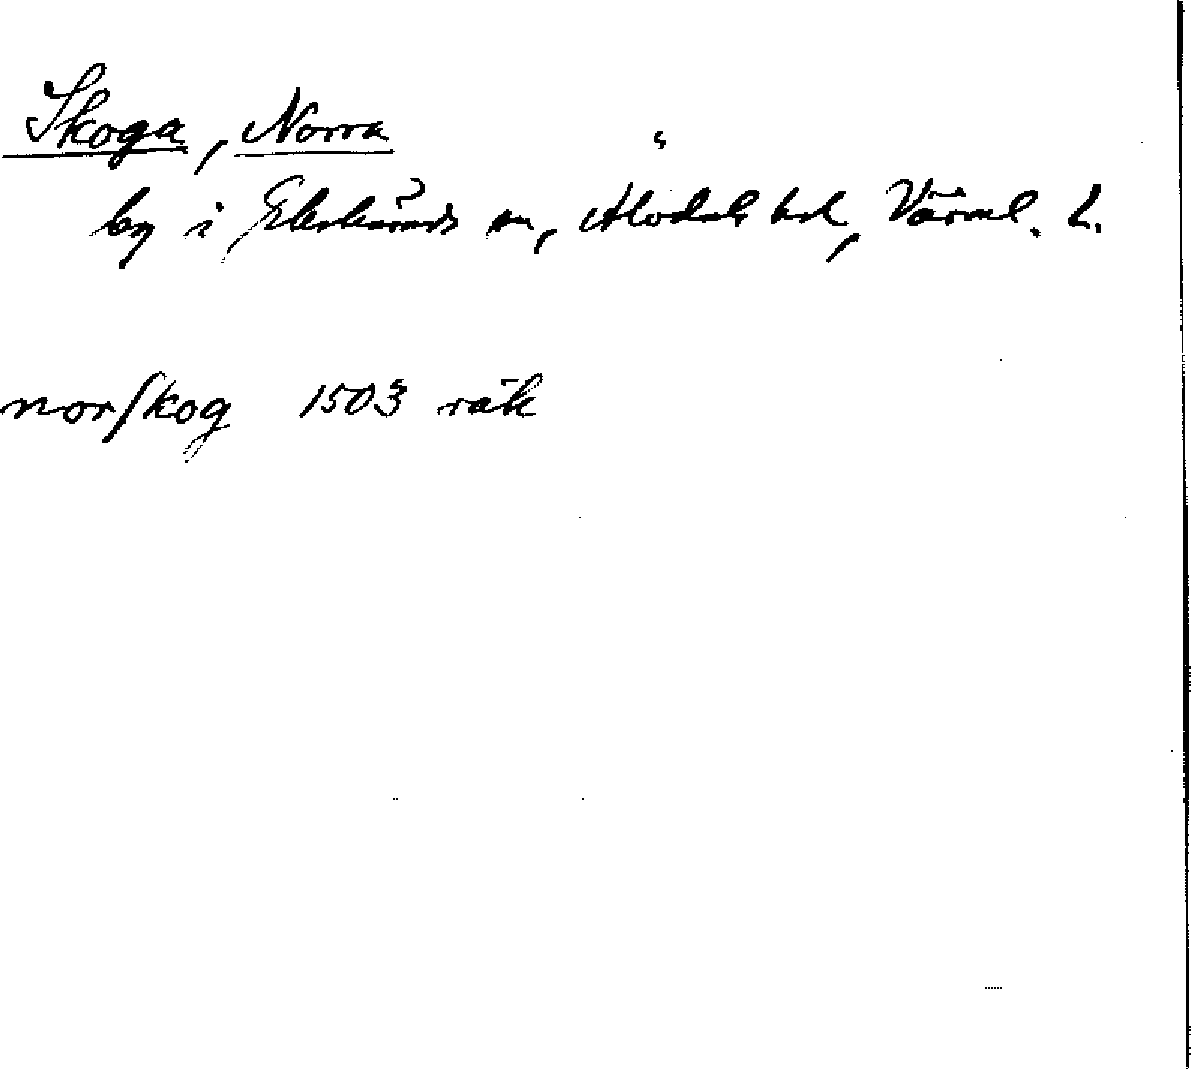 Skoga, Norra
by i Ekshärads sn, Älvdals hd, Värml. l.
norſkog 1503 räk